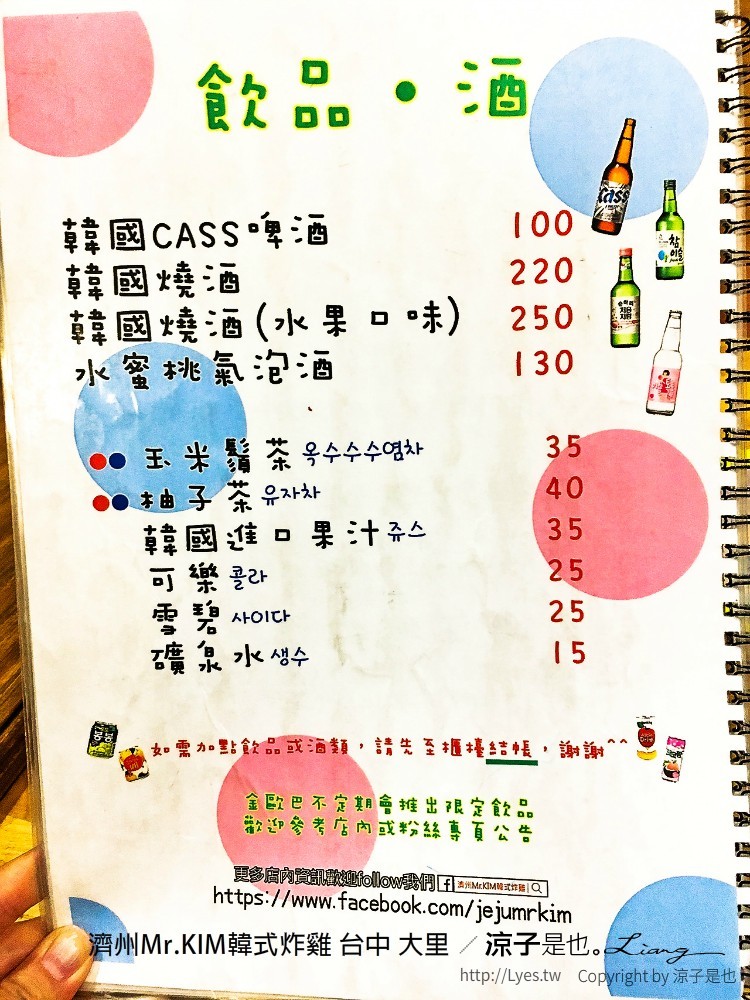 飲品・酒
韓國CASS啤酒 100
韓國燒酒 220
韓國燒酒(水果口味) 250
水蜜桃氣泡酒 130
玉米鬚茶 옥수수수염차 35
柚子茶 유자차 40
韓國進口果汁 쥬스 35
可樂 콜라 25
雪碧 사이다 25
礦泉水 생수 15
如需加點飲品或酒類，請先至櫃檯結帳，謝謝^^
金歐巴不定期會推出限定飲品
歡迎參考店內或粉絲專頁公告
更多店內資訊歡迎follow我們 f 濟州Mr.KIM韓式炸雞
https://www.facebook.com/jejumrkim
濟州Mr.KIM韓式炸雞 台中 大里 ／ 涼子是也。Liang
http://Lyes.tw Copyright by 涼子是也